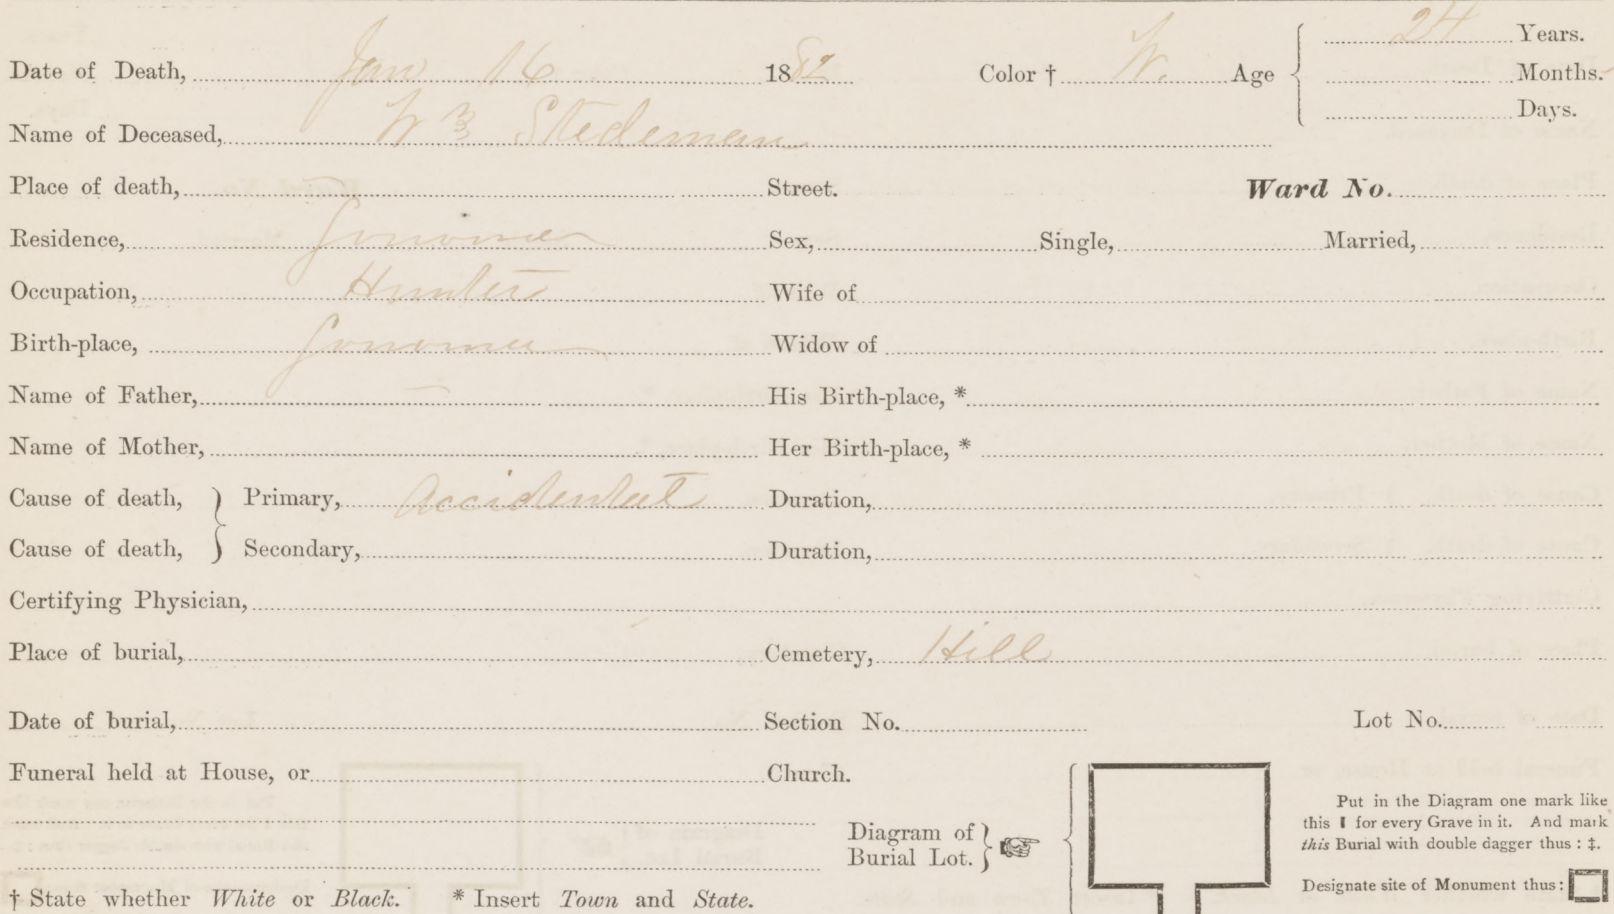 Date of Death, Jan 16 1882 Color † W. Age 24 Years.
Months.
Days.
Name of Deceased, W Stedeman
Place of death, Street. Ward No.
Residence, Sonoma Sex, Single, Married,
Occupation, Hunter Wife of
Birth-place, Sonoma Widow of
Name of Father, His Birth-place, *
Name of Mother, Her Birth-place, *
Cause of death, } Primary, Accidental Duration,
Cause of death, } Secondary, Duration,
Certifying Physician,
Place of burial, Cemetery, Hill
Date of burial, Section No. Lot No.
Funeral held at House, or Church.
Diagram of
Burial Lot.
Put in the Diagram one mark like
this I for every Grave in it. And mark
this Burial with double dagger thus : ‡.
Designate site of Monument thus:
† State whether White or Black. * Insert Town and State.